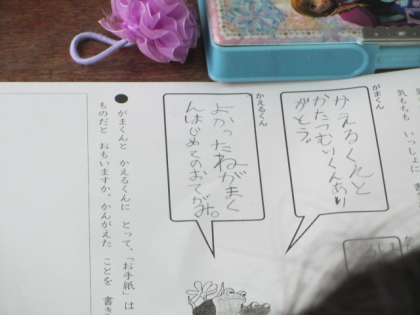 気もちも いっしょに
がまくん
かえるくんと
かたつむりくんあり
がとう
かえるくん
よかったねがまく
んはじめてのおてがみ。
●がまくんと かえるくんに とって、「お手紙」は
ものだと おもいますか。かんがえた ことを 書き